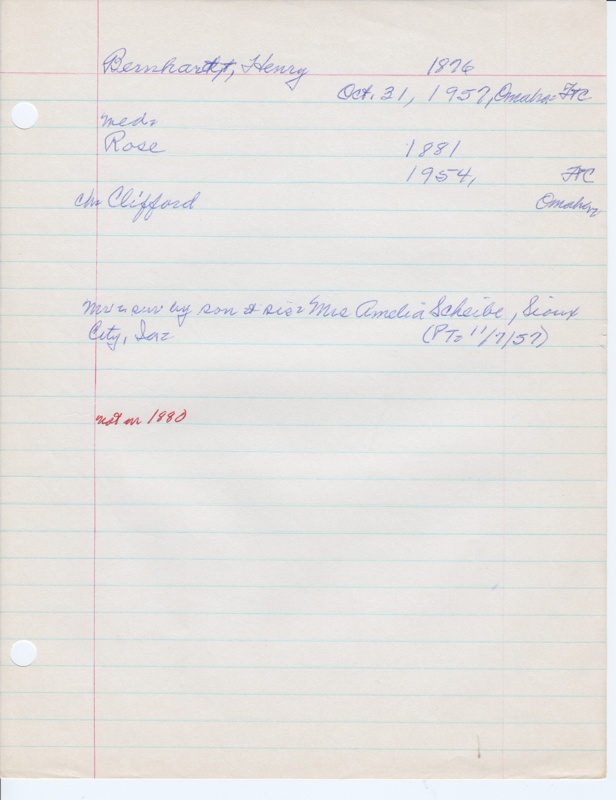 Bernhardt, Henry 1876
Oct. 21, 1957, Omaha FC
med:
Rose 1881
1954, FC
ch: Clifford Omaha
Mr. sur by son & sis: Mrs Amelia Scheibe, Sioux
City, Ia: (PT: 11/7/57)
not in 1880